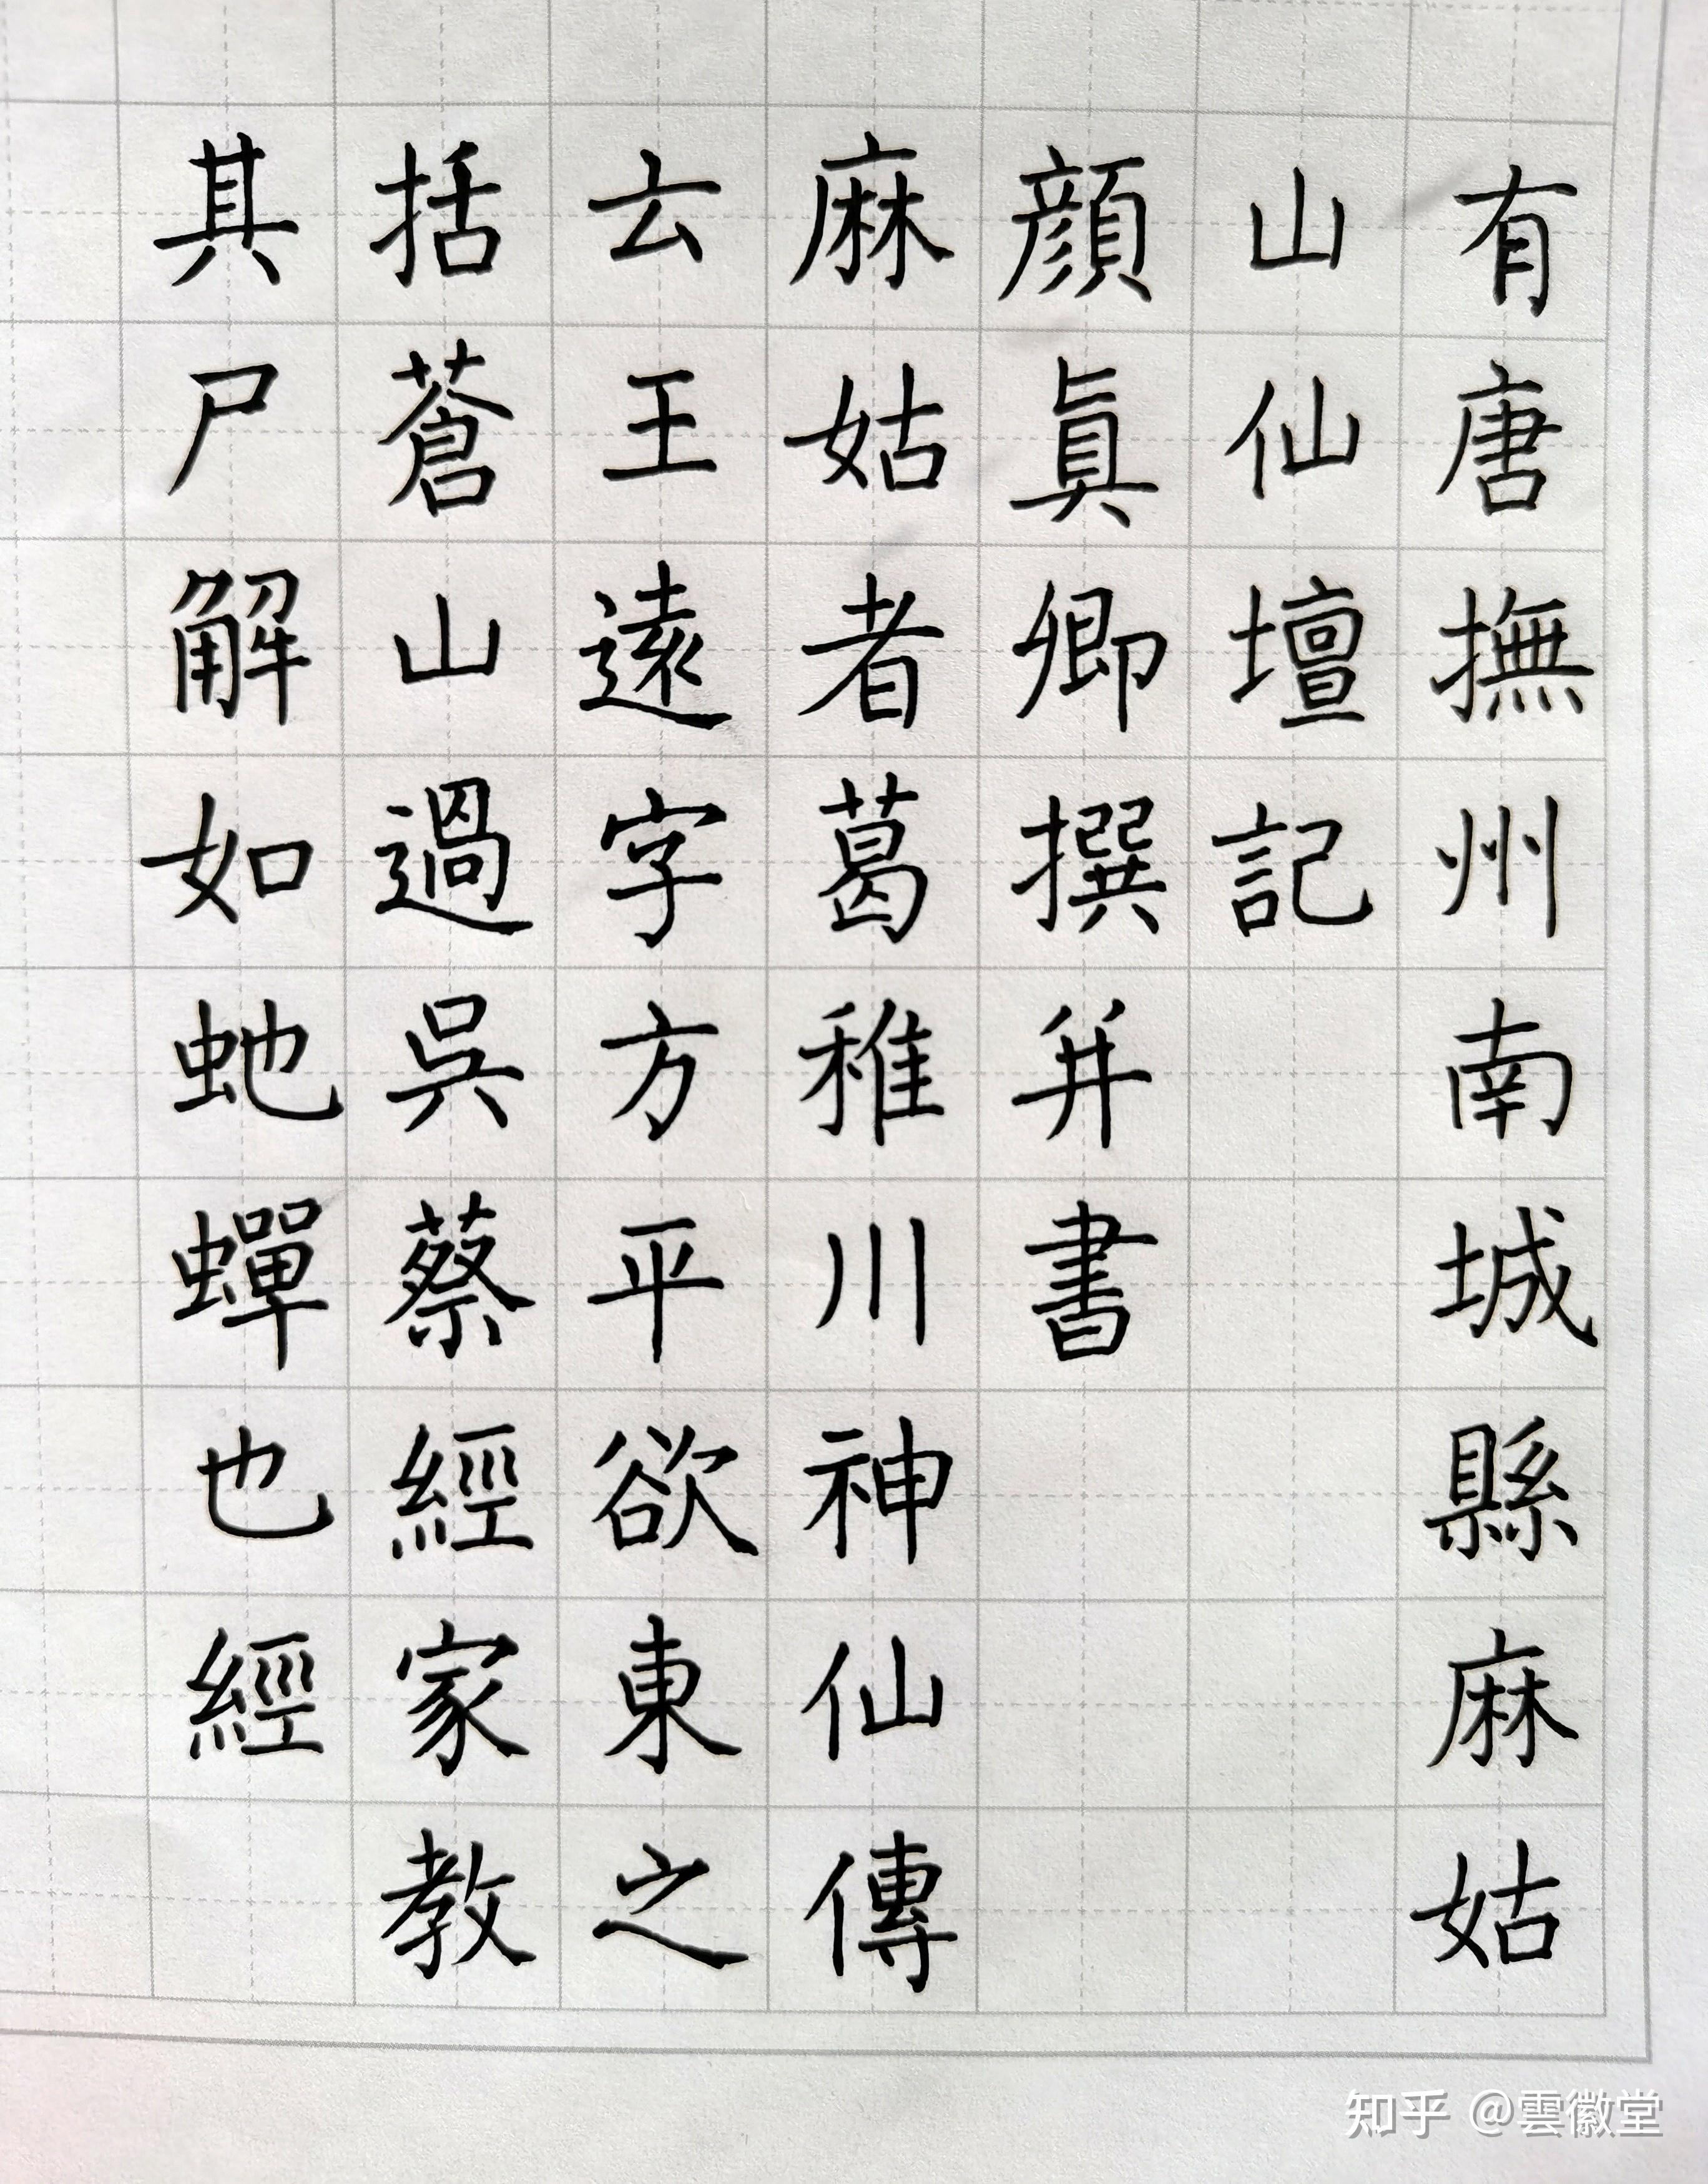 有唐撫州南城縣麻姑
山仙壇記
顏眞卿撰并書
麻姑者葛稚川神仙傳
云王遠字方平欲東之
括蒼山過吳蔡經家教
其尸解如虵蟬也經
知乎 @雲徽堂